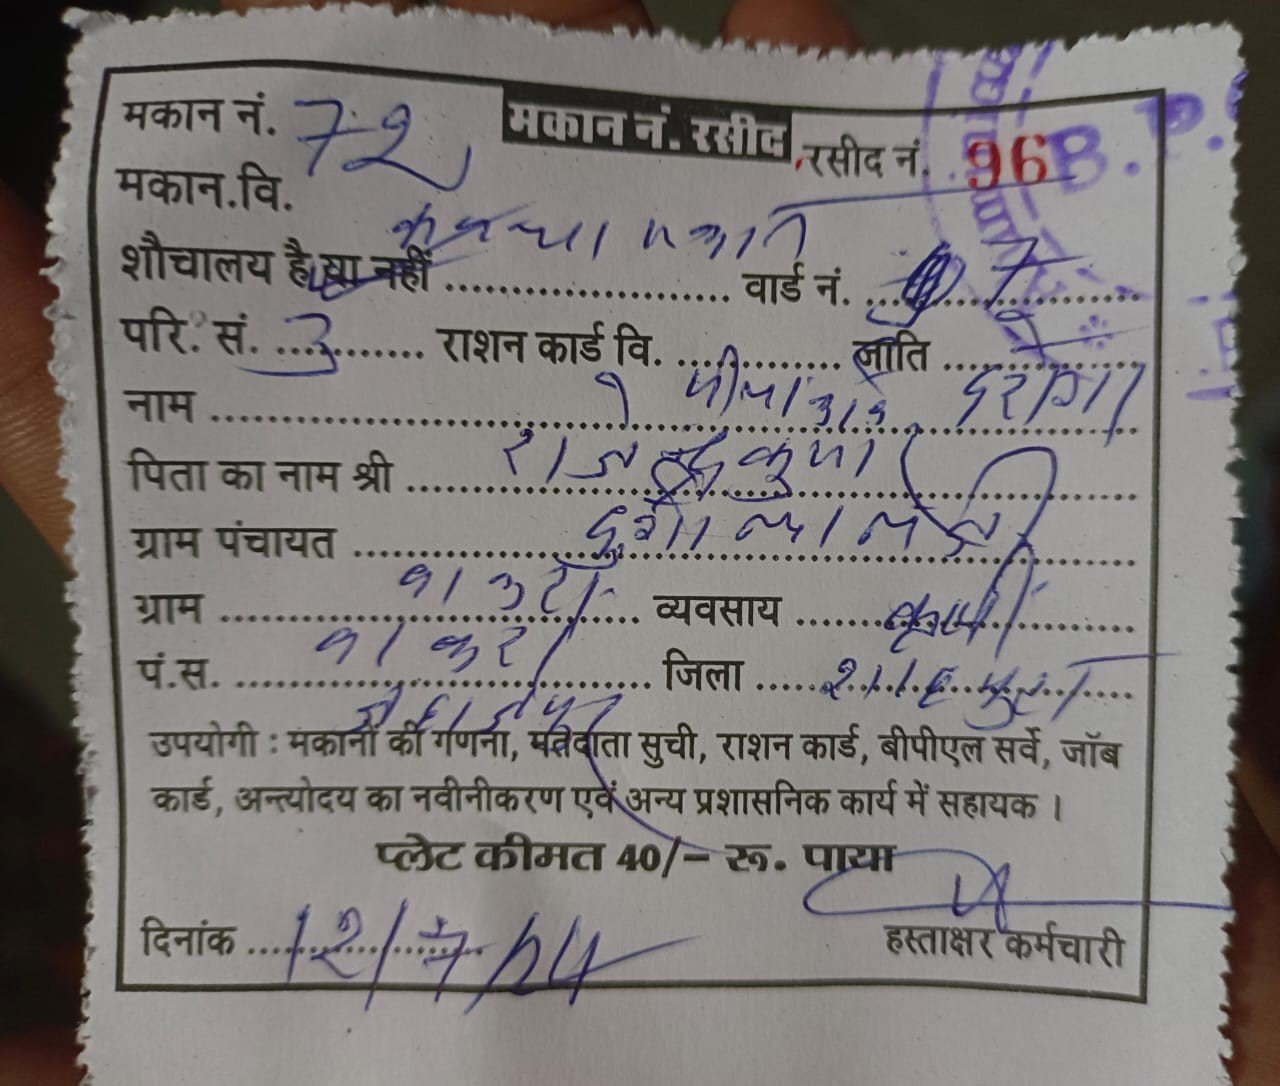 मकान नं. रसीद
मकान नं. 72
रसीद नं. 96
B.P.
मकान.वि. कच्चा मकान
शौचालय है या नहीं .......................... वार्ड नं. ... 7
परि. सं. 3 राशन कार्ड वि. .............. जाति
नाम ........ दरोगा
पिता का नाम श्री राजेन्द्र कुमार
ग्राम पंचायत
ग्राम ........ व्यवसाय कृषि
पं.स. जहाजपुर जिला शाहपुरा
उपयोगी : मकानों की गणना, मतदाता सुची, राशन कार्ड, बीपीएल सर्वे, जॉब
कार्ड, अन्त्योदय का नवीनीकरण एवं अन्य प्रशासनिक कार्य में सहायक ।
प्लेट कीमत 40/– रू. पाया
दिनांक 12/7/24
हस्ताक्षर कर्मचारी